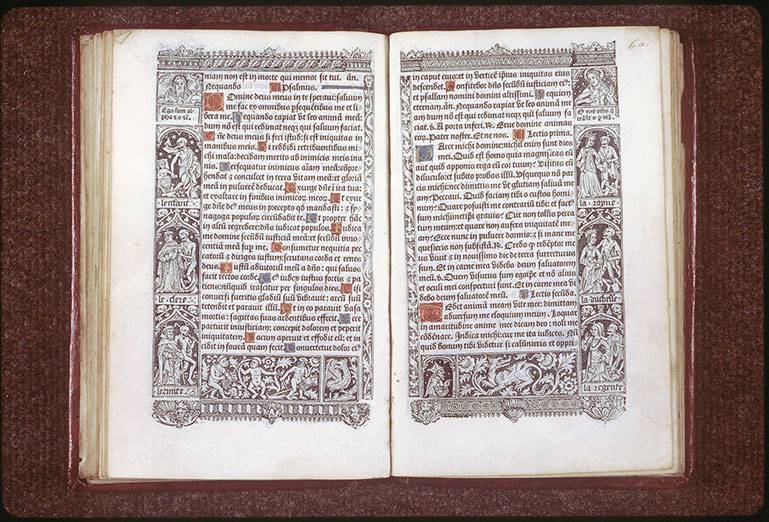 niam non est in morte qui memor sit tui. añ.
Nequando Psalmus.
Domine deus meus in te speraui: saluum
me fac ex omnibus persequẽtibus me et li
bera me. Nequando rapiat vt leo animã meã:
dum nõ est qui redimat neqʒ qui saluum faciat.
Dñe deus meus si feci istud: si est iniquitas in
manibus meis. Si reddidi retribuentibus mi
chi mala: decidam merito ab inimicis meis ina
nis. Persequatur inimicus aĩam meã: ⁊ cõpre
hendat ⁊ conculcet in terra vitam meã: et gloriã
meã in puluerẽ deducat. Exurge dñe ĩ ira tua:
et exaltare in finibus inimicoꝝ meoꝝ. Et exur
ge dñe deꝰ meus in precepto qḋ mandasti: ⁊ sy
nagoga populoꝝ circũdabit te. Et propter hãc
in altũ regredere: dñs iudicat populos. Iudica
me domine secundũ iusticiã meã: et secundũ inno
centiã meã sup me. Consumetur nequitia pec
catorũ ⁊ diriges iustum: scrutans corda et renes
deus. Iustũ adiutoriũ meũ a dño: qui saluos
facit rectos corde. Deus iudex iustus fortis ⁊ pa
tiens: nũquid irascitur per singulos dies. Nisi
conuersi fueritis gladiũ suũ vibrauit: arcũ suũ
tetendit et parauit illũ. Et in eo parauit vasa
mortis: sagittas suas ardentibus effecit. Ecce
parturiit iniusticiam: concepit dolorem et peperit
iniquitatem. Lacum aperuit et effodit eũ: et in
cidit in foueã quam fecit. Conuertetur dolor eiꝰ
lenfant
le clerc
lermite
60.
in caput eius: et in verticẽ ipsius iniquitas eius
descendet. Confitebor dño secundũ iusticiam eiꝰ:
et psallam nomini domini altissimi. Requiem
eternam. añ. Nequando rapiat vt leo animã me
am: dum nõ est qui redimat neqʒ qui saluum fa
ciat. ℣. A porta inferi. ℟. Erue domine animas
eoꝝ. Pater noster. Et ne nos. Lectio prima.
Parce michi domine: nichil enim sunt dies
mei. Quid est homo quia magnificas eũ:
aut quid apponis erga eũ cor tuum? Visitas eũ
diluculo: et subito probas illũ. Usquequo nõ par
cis michi: nec dimittis me vt glutiam saliuã me
am? Peccaui. Quid faciam tibi o custos homi
num? Quare posuisti me contrariũ tibi: et fact
sum michimetipsi grauis? Cur non tollis pecca
tum meum: et quare non aufers iniquitatẽ me
am? Ecce nunc in puluere dormio: ⁊ si mane me
quesieris non subsistã. ℟. Credo qḋ redẽptor me
us viuit ⁊ in nouissimo die de terra surrecturus
sum. Et in carne mea videbo deum saluatorem
meũ. ℣. Quem visurus sum egoipse et nõ alius
et oculi mei conspecturi sunt. Et in carne mea vi
debo deum saluatorẽ meũ. Lectio secũda.
Tedet animã meam vite mee: dimittam
aduersum me eloquium meum. Loquar
in amaritudine anime mee: dicam deo: noli me
cõdẽnare. Indica michi cur me ita iudices. Nũ
quid bonum tibi videtur si calũnieris et oppri
la duchesse
la regente